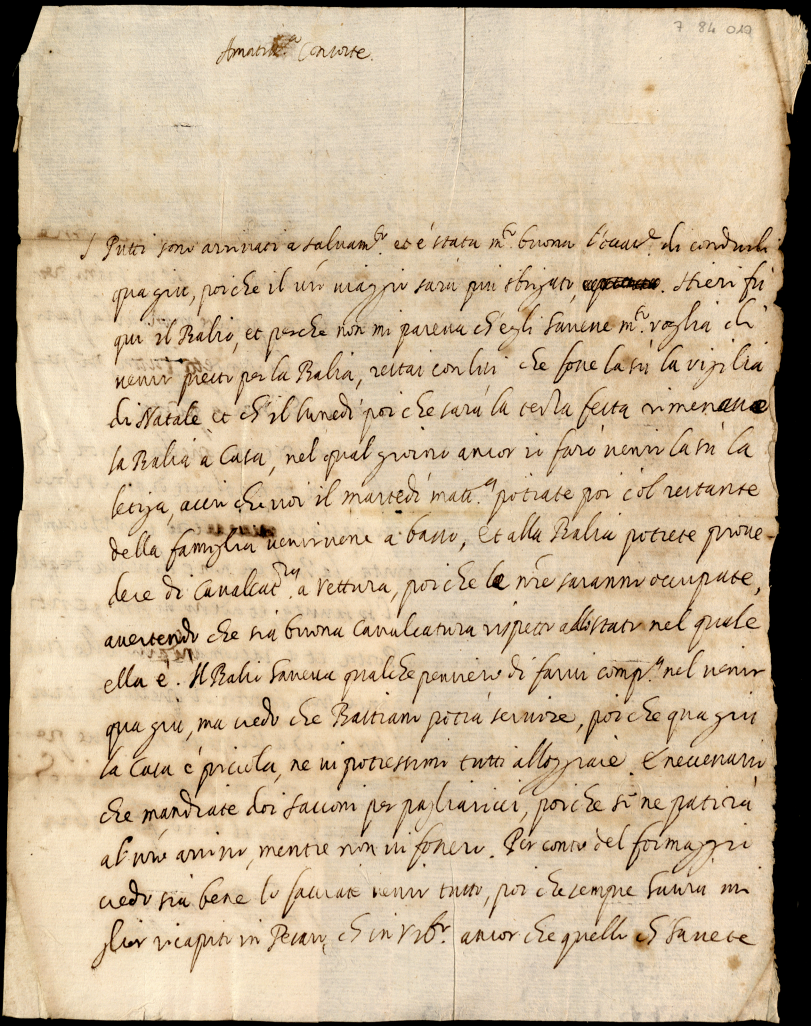 7 84 019
Amatiss.a Consorte.
I Putti sono arrivati a salvam.to et è stata m.to buona l'occas.e di condurli
qua giù, poiche il vr̃o viaggio sarà più sbrigato. Hieri fù
qui il Balio, et perche non mi pareva ch'egli havesse m.ta voglia di
venir presto per la Balia, restai con lui che fosse la sù la vigilia
di Natale et ch'il lunedì poi che sarà la terza festa rimenasse
la Balia à Casa, nel qual giorno ancor io farò venir la sù la
letiga, acciò che voi il martedì matt.a potiate poi col restante
della famiglia venirvene a basso, et alla Balia potrete prove
dere di Cavalcat.ra a vettura, poiche le nr̃e saranno occupate,
avertendo che sia buona cavalcatura rispetto allo stato nel quale
ella è. Il Balio haveva qualche pensiero di farvi comp.a nel venir
qua giù, ma credo che Bastiano potrà servire, poi che qua giù
la Casa è piciola, ne vi potressimo tutti alloggiare. È necessario
che mandiate doi sacconi per pagliaricci, poiche si ne patirà
al vr̃o arrivo, mentre non vi fossero. Per conto del formaggio
credo sia bene lo facciate venir tutto, poi che sempre havrà mi
glior ricapito in Pesaro, ch in Urb.o ancor che quello ch havete